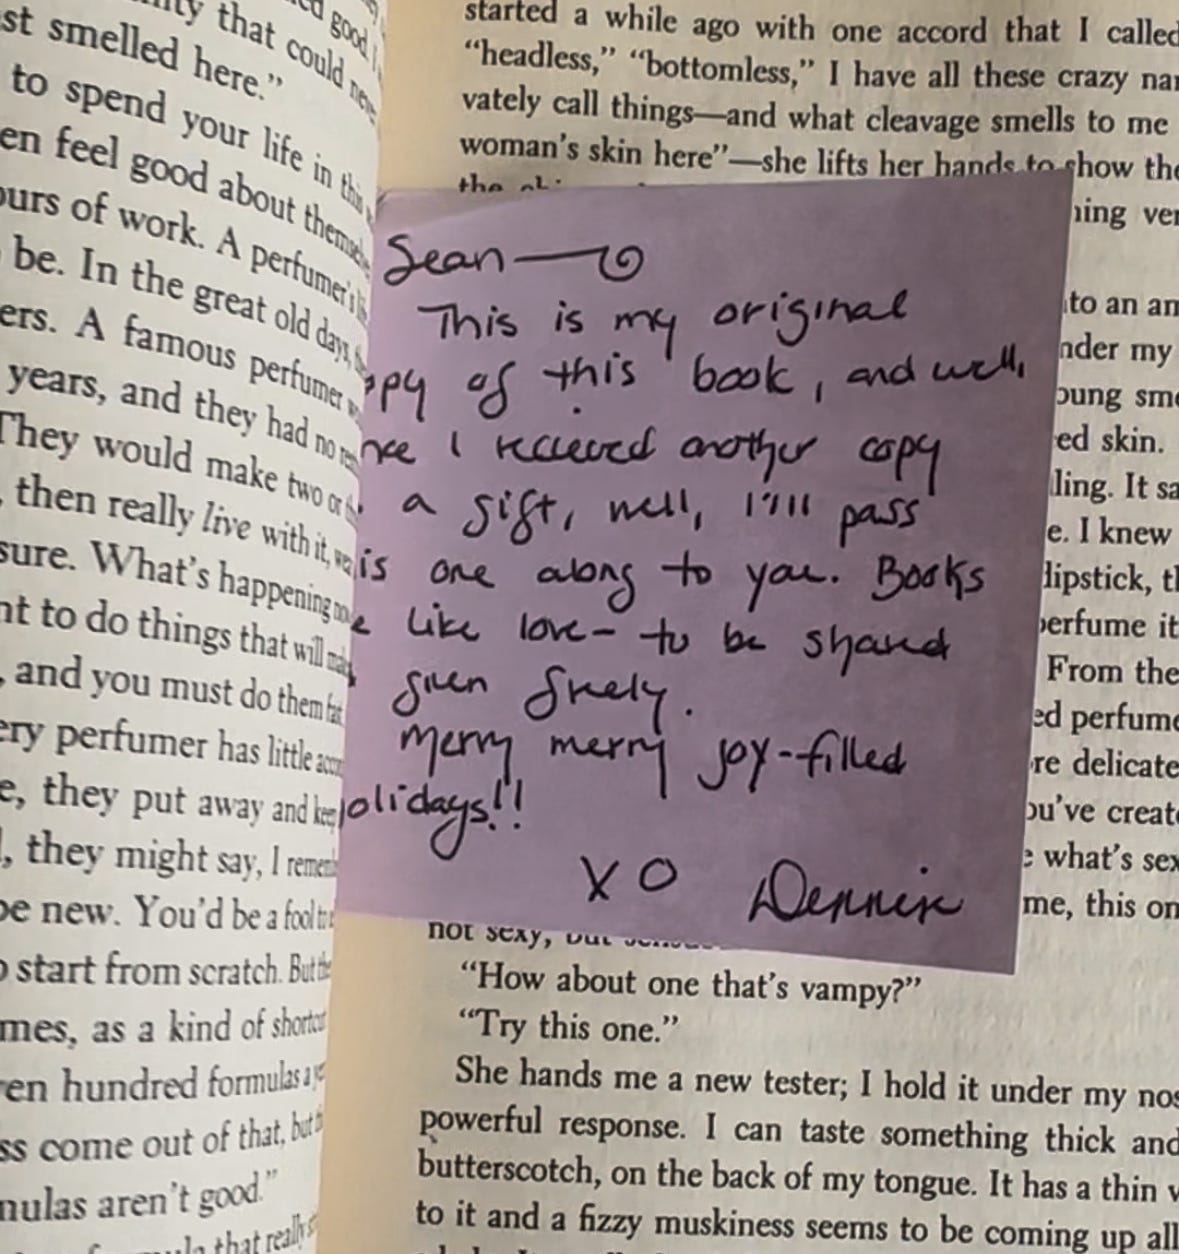 ity that could
good
st smelled here.”
to spend your life in this
en feel good about
ours of work. A perfumer's
be. In the great old days,
ers. A famous perfumer
years, and they had no
They would make two or
, then really live with it,
sure. What's happening
nt to do things that will
, and you must do them
ery perfumer has little
e, they put away and
, they might say, I
be new. You'd be a fool
o start from scratch. But
mes, as a kind of
en hundred formulas
ss come out of that, but
mulas aren't good.”
that really
started a while ago with one accord that I called
“headless,” “bottomless,” I have all these crazy
vately call things—and what cleavage smells to me
woman's skin here”—she lifts her hands to show the
the
Sean
This is my original
opy of this book, and well,
nce I recieved another copy
a gift, well, I'll pass
is one along to you. Books
e like love- to be shared
given freely.
Merry merry joy-filled
olidays!!
XO Dennis
hing
to an
nder my
oung
ed skin.
ling. It
e. I knew
lipstick,
perfume it
From the
ed
re delicate
ou've
what's
me, this
not sexy, but
“How about one that's vampy?”
“Try this one.”
She hands me a new tester; I hold it under my
powerful response. I can taste something thick and
butterscotch, on the back of my tongue. It has a thin
to it and a fizzy muskiness seems to be coming up all